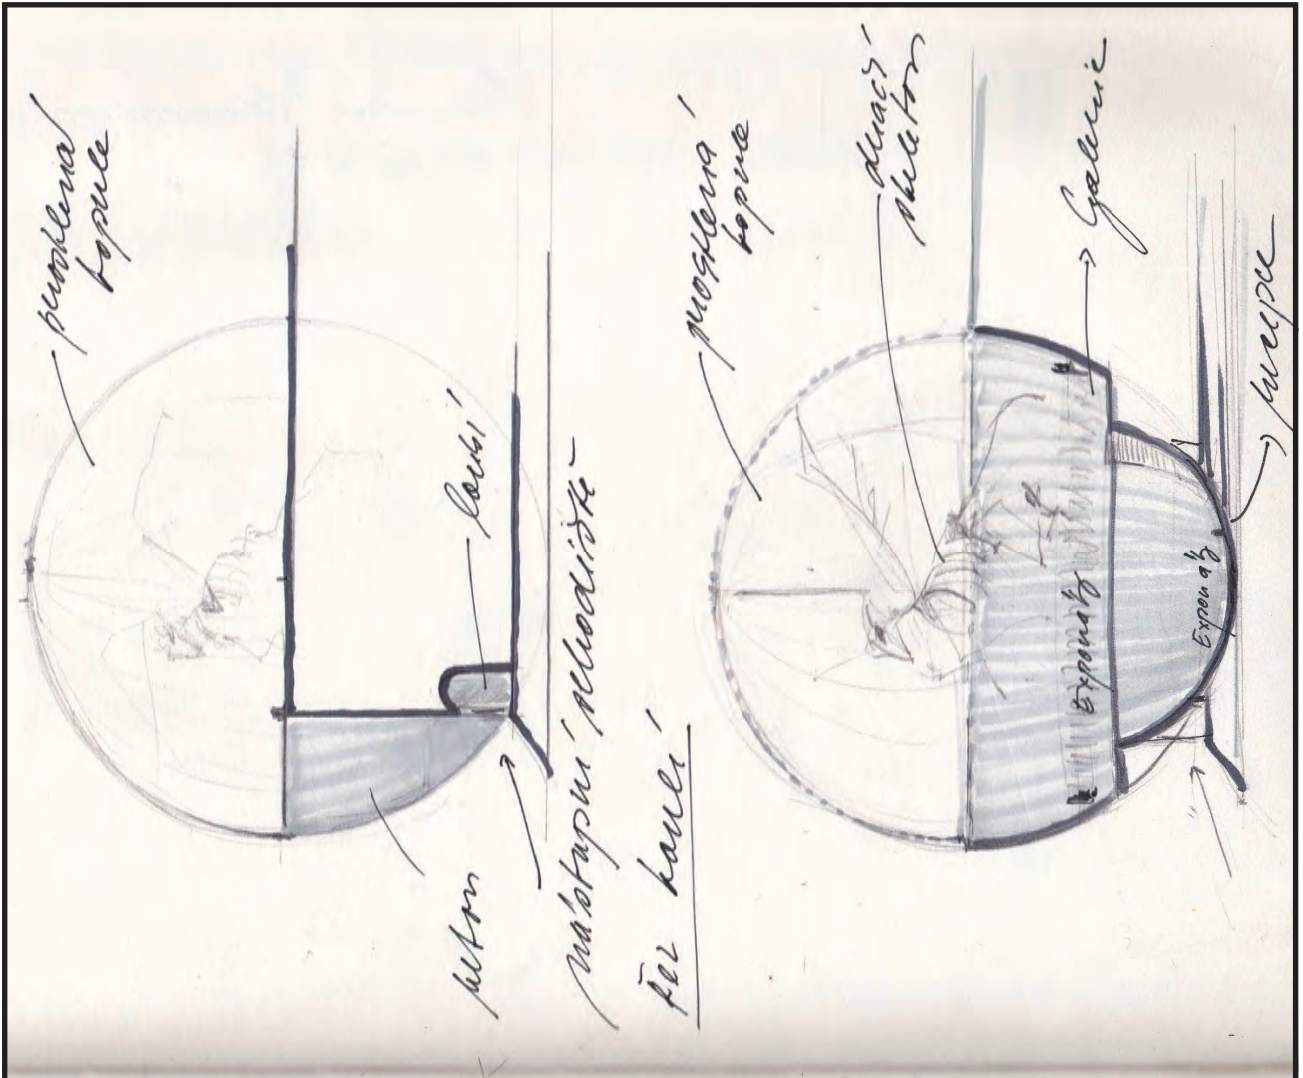 prosklená
kopule
loubí
beton
nástupní schodiště
Řez koulí
prosklená
kopule
dračí
skeleton
Galerie
Exponáty
Exponáty